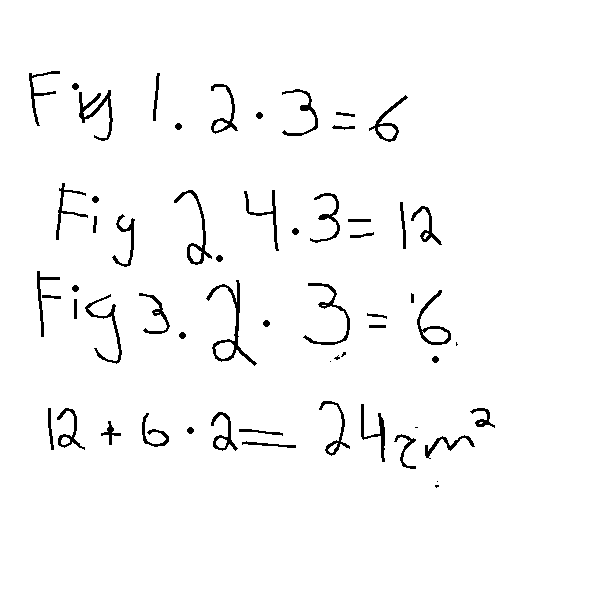 Fig 1. 2 · 3 = 6
Fig 2. 4 · 3 = 12
Fig 3. 2 · 3 = 6
12 + 6 · 2 = 24 cm²